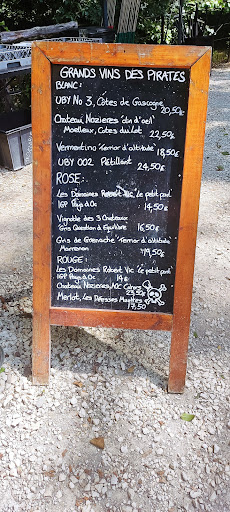 GRANDS VINS DES PIRATES
BLANC:
UBY No 3, Côtes de Gascogne
20,50€
Chateau Nozieres
Moelleux, Cotes du Lot 22,50€
Vermentino Terroir d'altitude 18,50€
UBY 002 Pétillant 24,50€
ROSE:
Les Domaines Robert Vic "Le petit paul"
IGP Pays d'Oc 14,50€
Vignoble des 3 Chateaux
Gris Question d'Equilibre 16,50€
Gris de Grenache "Terroir d'altitude"
ROUGE:
Les Domaines Robert Vic "Le petit paul"
IGP Pays d'Oc 14€
Chateau Nozieres, AOC Cahors
23,50€
Merlot, Les
17,50